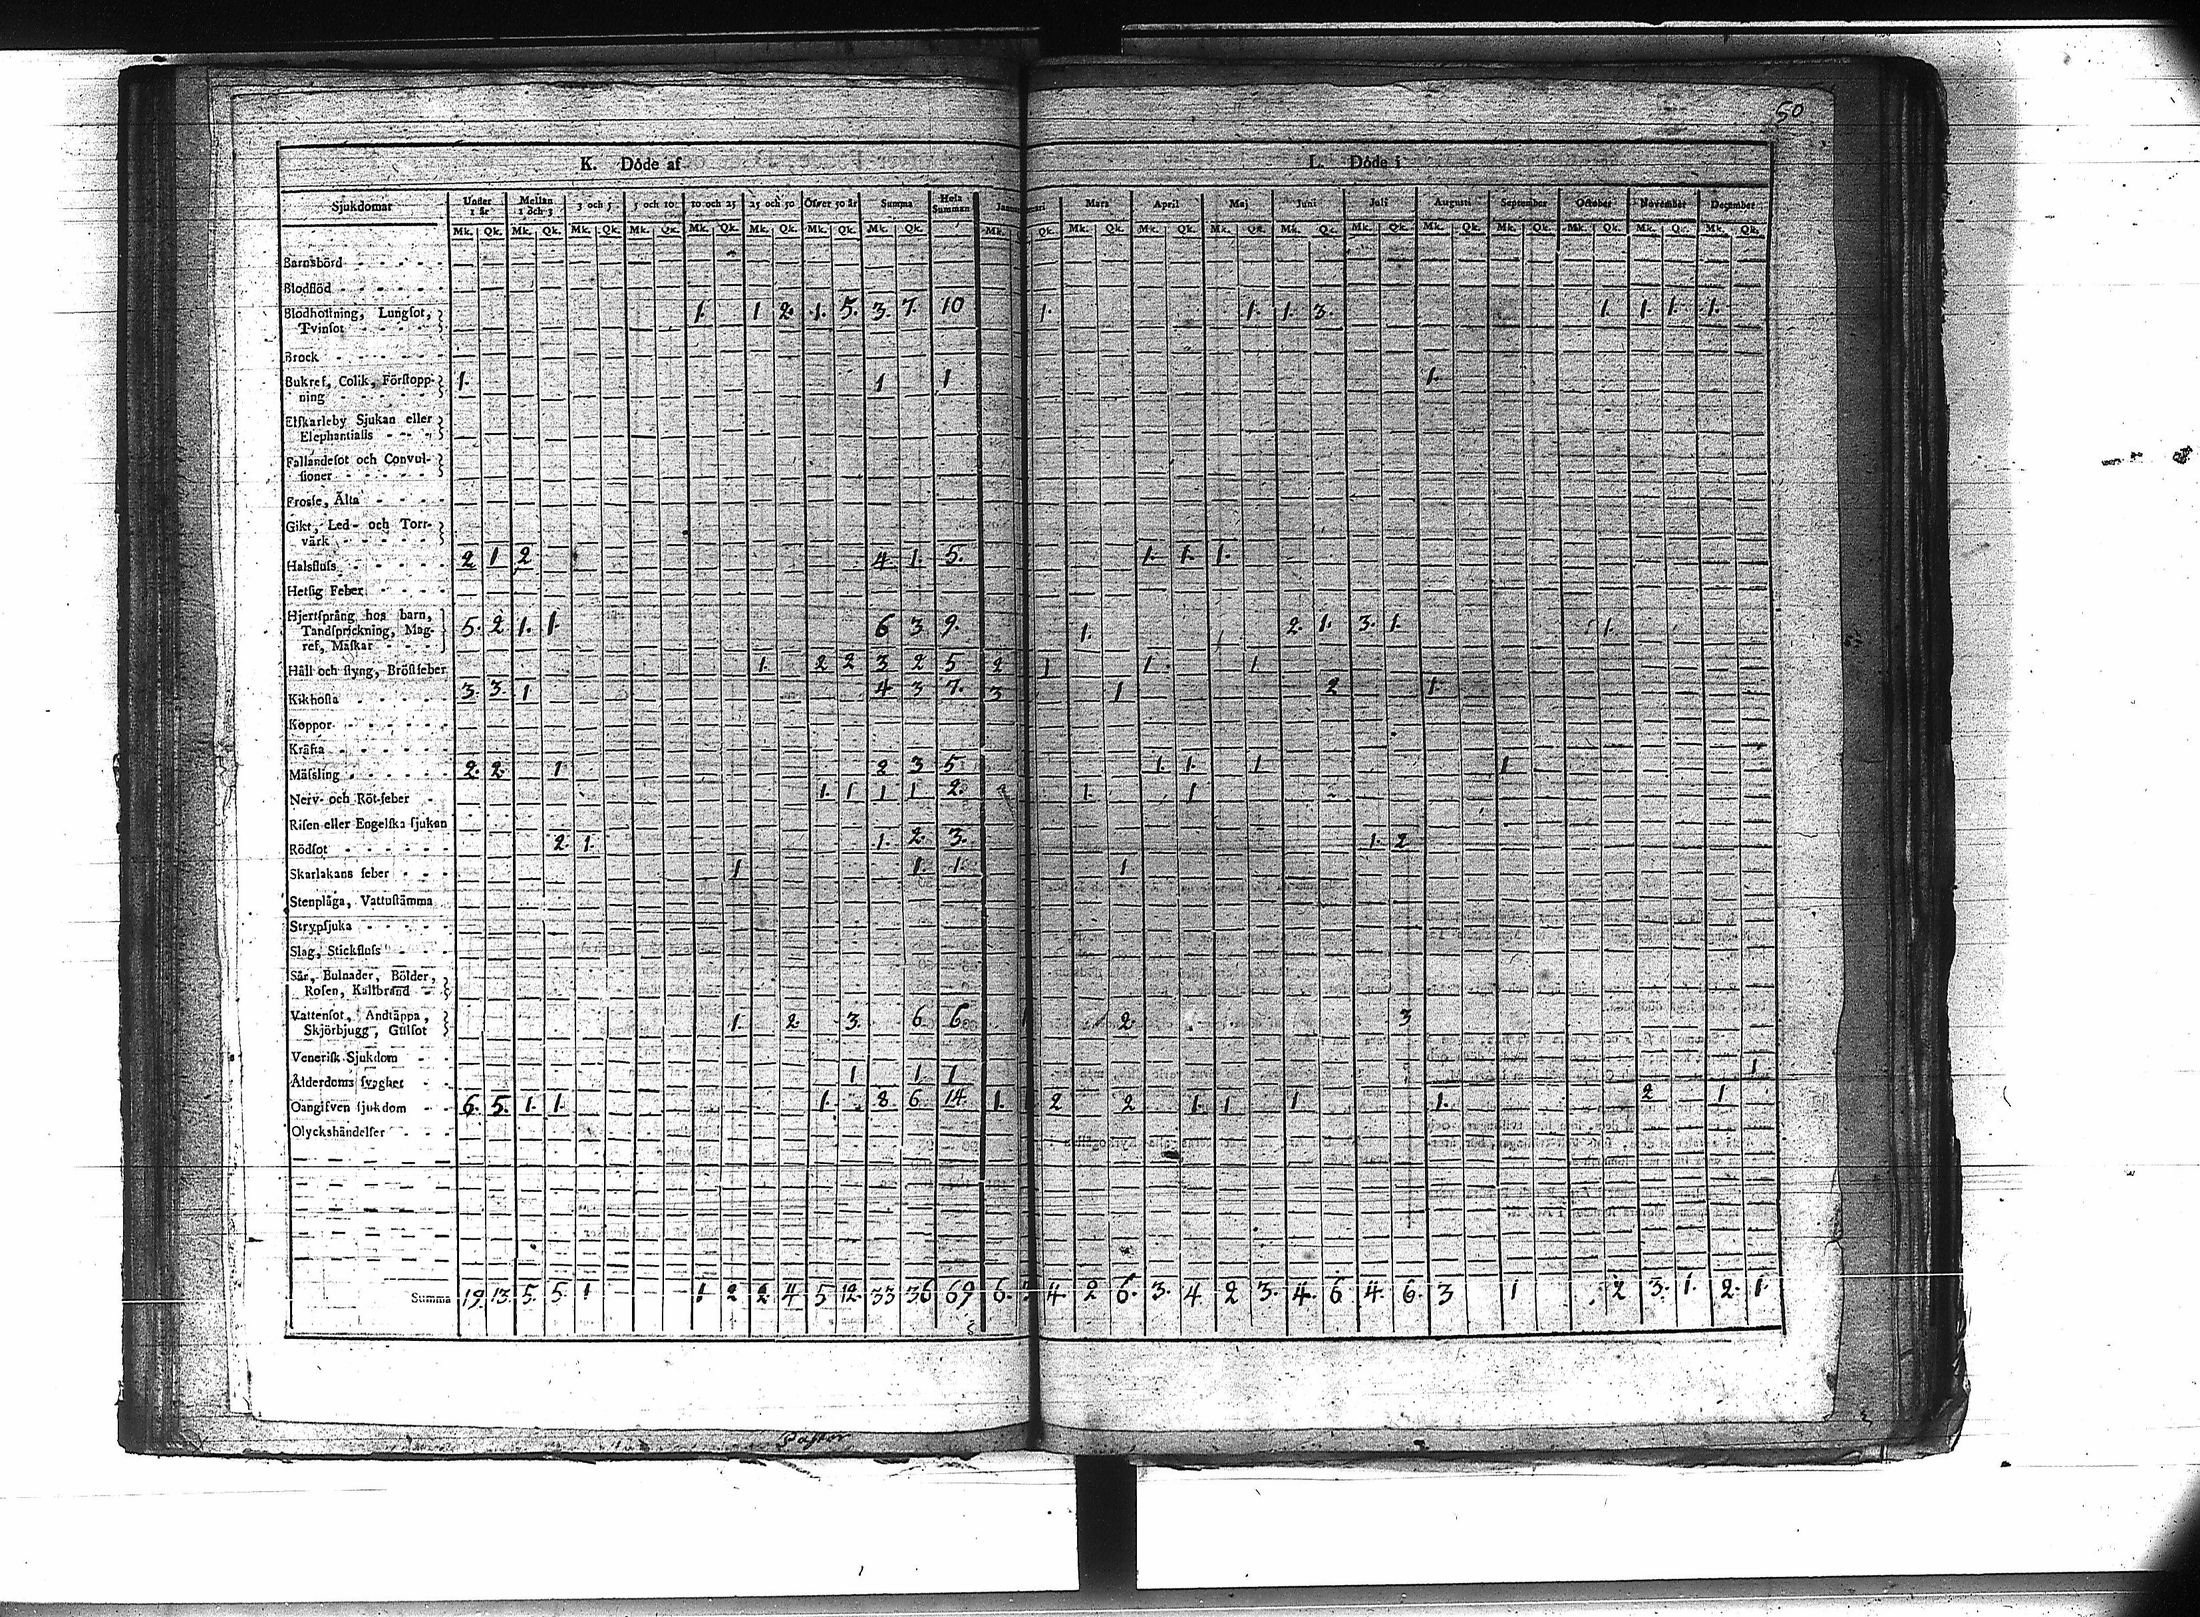 50
K. Döde af L. Döde i
Sjukdomar Under 1 år Mellan 1 och 3 3 och 5 5 och 10 10 och 25 25 och 50 Öfver 50 år Summa Hela Summan Januari Mars April Maj Juni Juli Augusti September October November December
Mk. Qk. Mk. Qk. Mk. Qk. Mk. Qk. Mk. Qk. Mk. Qk. Mk. Qk. Mk. Qk. Mk. Qk. Mk. Qk. Mk. Qk. Mk. Qk. Mk. Qk. Mk. Qk. Mk. Qk. Mk. Qk. Mk. Qk. Mk. Qk. Mk. Qk.
Barnsbörd
Blodflöd
Blodhostning, Lungsot, 1. 1 2. 1. 5. 3. 7. 10 1. 1. 1. 3. 1. 1. 1. 1.
Tvinsot
Brock
Bukref, Colik, Förstopp- 1. 1 1 1.
ning
Elfkarleby Sjukan eller
Elephantiasis
Fallandesot och Convul-
sioner
Frossa, Älta
Gikt, Led- och Torr-
värk
Halsfluss 2 1 2 4. 1. 5. 1. 1. 1.
Hetsig Feber
Hjertsprång hos barn,
Tandsprickning, Mag- 5. 2 1. 1. 6 3 9. 1. 2. 1. 3. 1. 1.
ref, Maskar
Håll och styng, Bröstfeber 1. 2 2 3 2 5 2 1 1. 1
Kikhosta 3. 3. 1 4 3 7. 3 1 2 1.
Koppor
Kräfta
Mässling 2. 2. 1 2 3 5 1. 1. 1 1
Nerv- och Röt-feber 1. 1 1 1 2. 1. 1
Risen eller Engelska sjukan
Rödsot 2. 1. 1. 2. 3. 1. 2
Skarlakans feber 1 1. 1. 1
Stenplåga, Vattustämma
Strypsjuka
Slag, Stickfluss
Sår, Bulnader, Bölder,
Rosen, Kallbrand
Vattensot, Andtäppa, 1. 2. 3. 6. 6. 1 2 3
Skjörbjugg, Gulsot
Venerisk Sjukdom
Ålderdoms svaghet 1 1 1 1
Oangifven sjukdom 6. 5. 1. 1. 1. 8 6. 14. 1. 2 2 1. 1 1 1. 2 1
Olyckshändelser
Summa 19. 13. 5. 5. 1 1. 2 2 4 5 12. 33 36 69 6. 4. 2 6. 3. 4. 2 3. 4. 6 4. 6. 3 1 2 3. 1. 2. 1.
Pastor